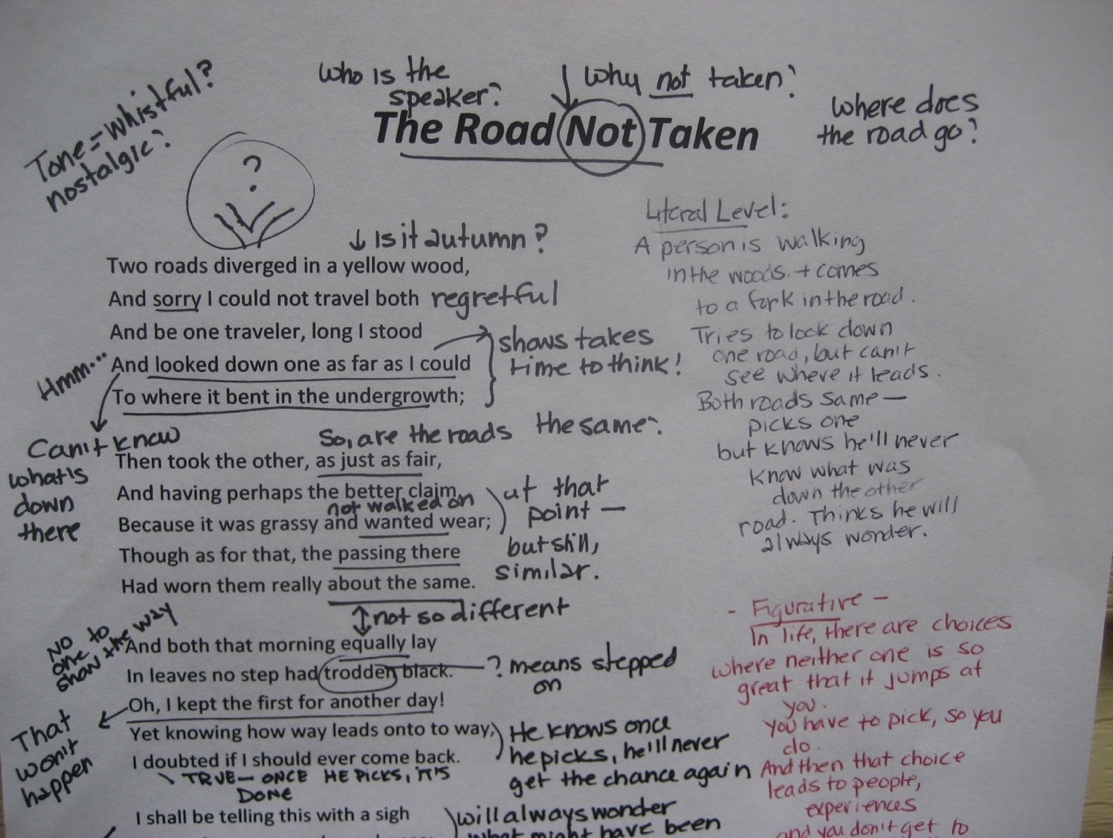 Tone = whistful?
nostalgic?
who is the
speaker?
↓ Why not taken?
where does
the road go?
The Road Not Taken
?
↓ Is it autumn?
Two roads diverged in a yellow wood,
And sorry I could not travel both regretful
And be one traveler, long I stood
And looked down one as far as I could
To where it bent in the undergrowth;
shows takes
time to think!
Hmm...
Can't know
what's
down
there
So, are the roads the same?
Then took the other, as just as fair,
And having perhaps the better claim,
not walked on
Because it was grassy and wanted wear;
Though as for that, the passing there
Had worn them really about the same.
at that
point —
but still,
similar.
not so different
No
one to
show the way
And both that morning equally lay
In leaves no step had trodden black.
? means stepped
on
Oh, I kept the first for another day!
That
won't
happen
Yet knowing how way leads onto to way,
I doubted if I should ever come back.
He knows once
he picks, he'll never
get the chance again
TRUE — ONCE HE PICKS, IT IS
DONE
I shall be telling this with a sigh
will always wonder
what might have been
Literal Level:
A person is walking
in the woods. + comes
to a fork in the road.
Tries to look down
one road, but can't
see where it leads.
Both roads same —
picks one
but knows he'll never
know what was
down the other
road. Thinks he will
always wonder.
- Figurative -
In life, there are choices
where neither one is so
great that it jumps at
you.
You have to pick, so you
do.
And then that choice
leads to people,
experiences
and you don't get to